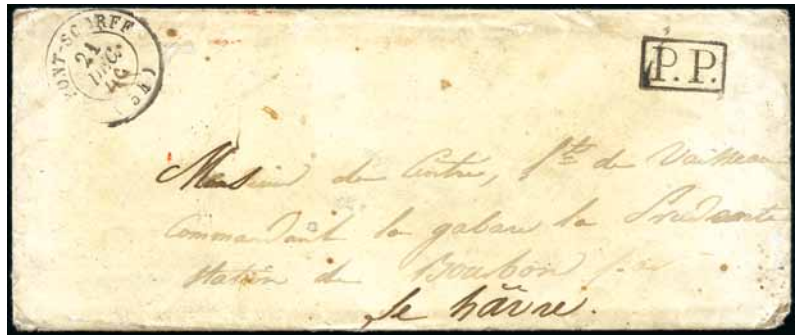 PONT-SCORFF
21
DEC.
46
P.P.
Monsieur de Cintré, Lt de Vaisseau
Commandant la gabare la Prudente
station de Bourbon par
le hâvre.